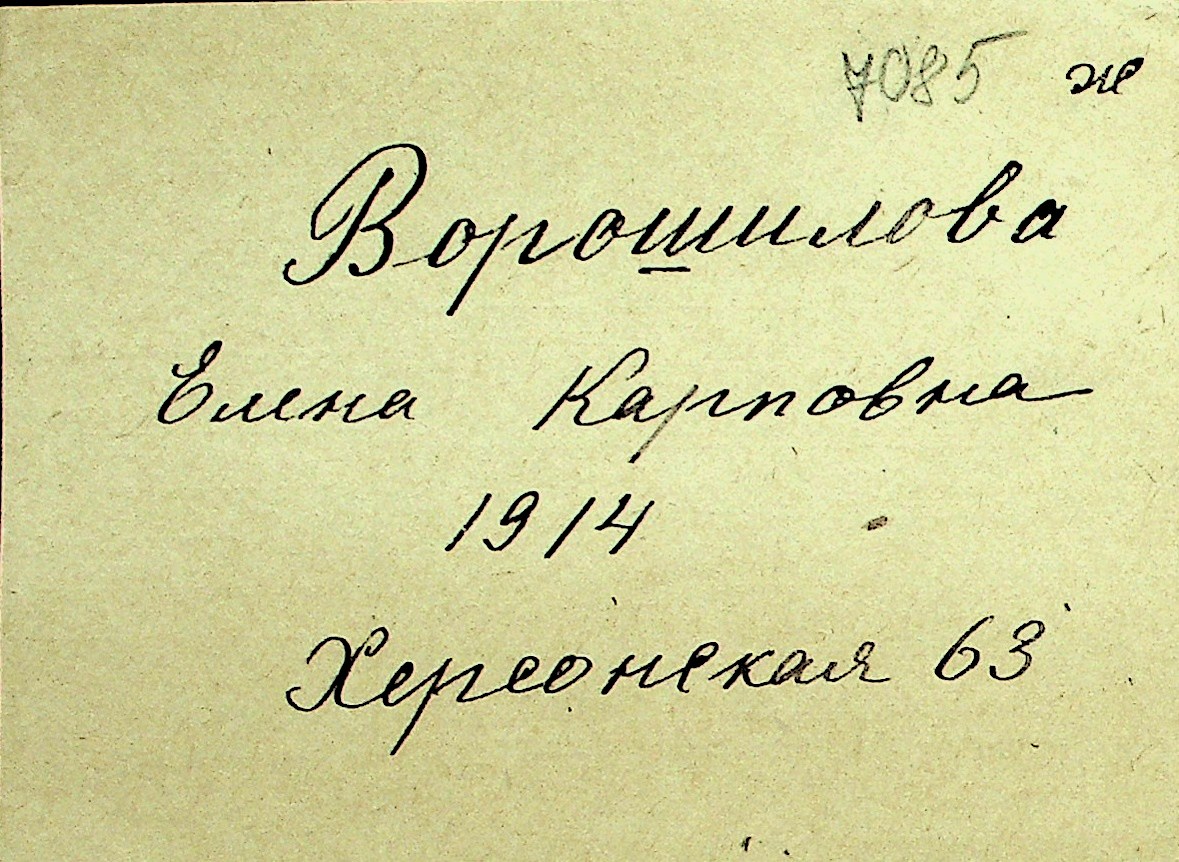 7085 ж
Ворошилова
Елена Карповна
1914
Херсонская 63